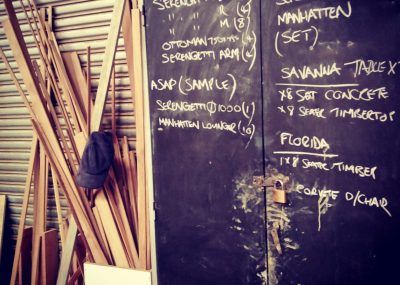 SERENGETTI
" " R (
" " M (8)
OTTOMAN 750 (
SERENGETTI ARM (2)
ASAP (SAMPLE)
SERENGETTI Ø 1000 (1)
MANHATTEN LOUNGER (10)
MANHATTEN
(SET)
SAVANNA TABLE X
X8 SET CONCRETE
X8 SEATER TIMBERTOP
FLORIDA
1X8 SEATER/TIMBER
D/CHAIR